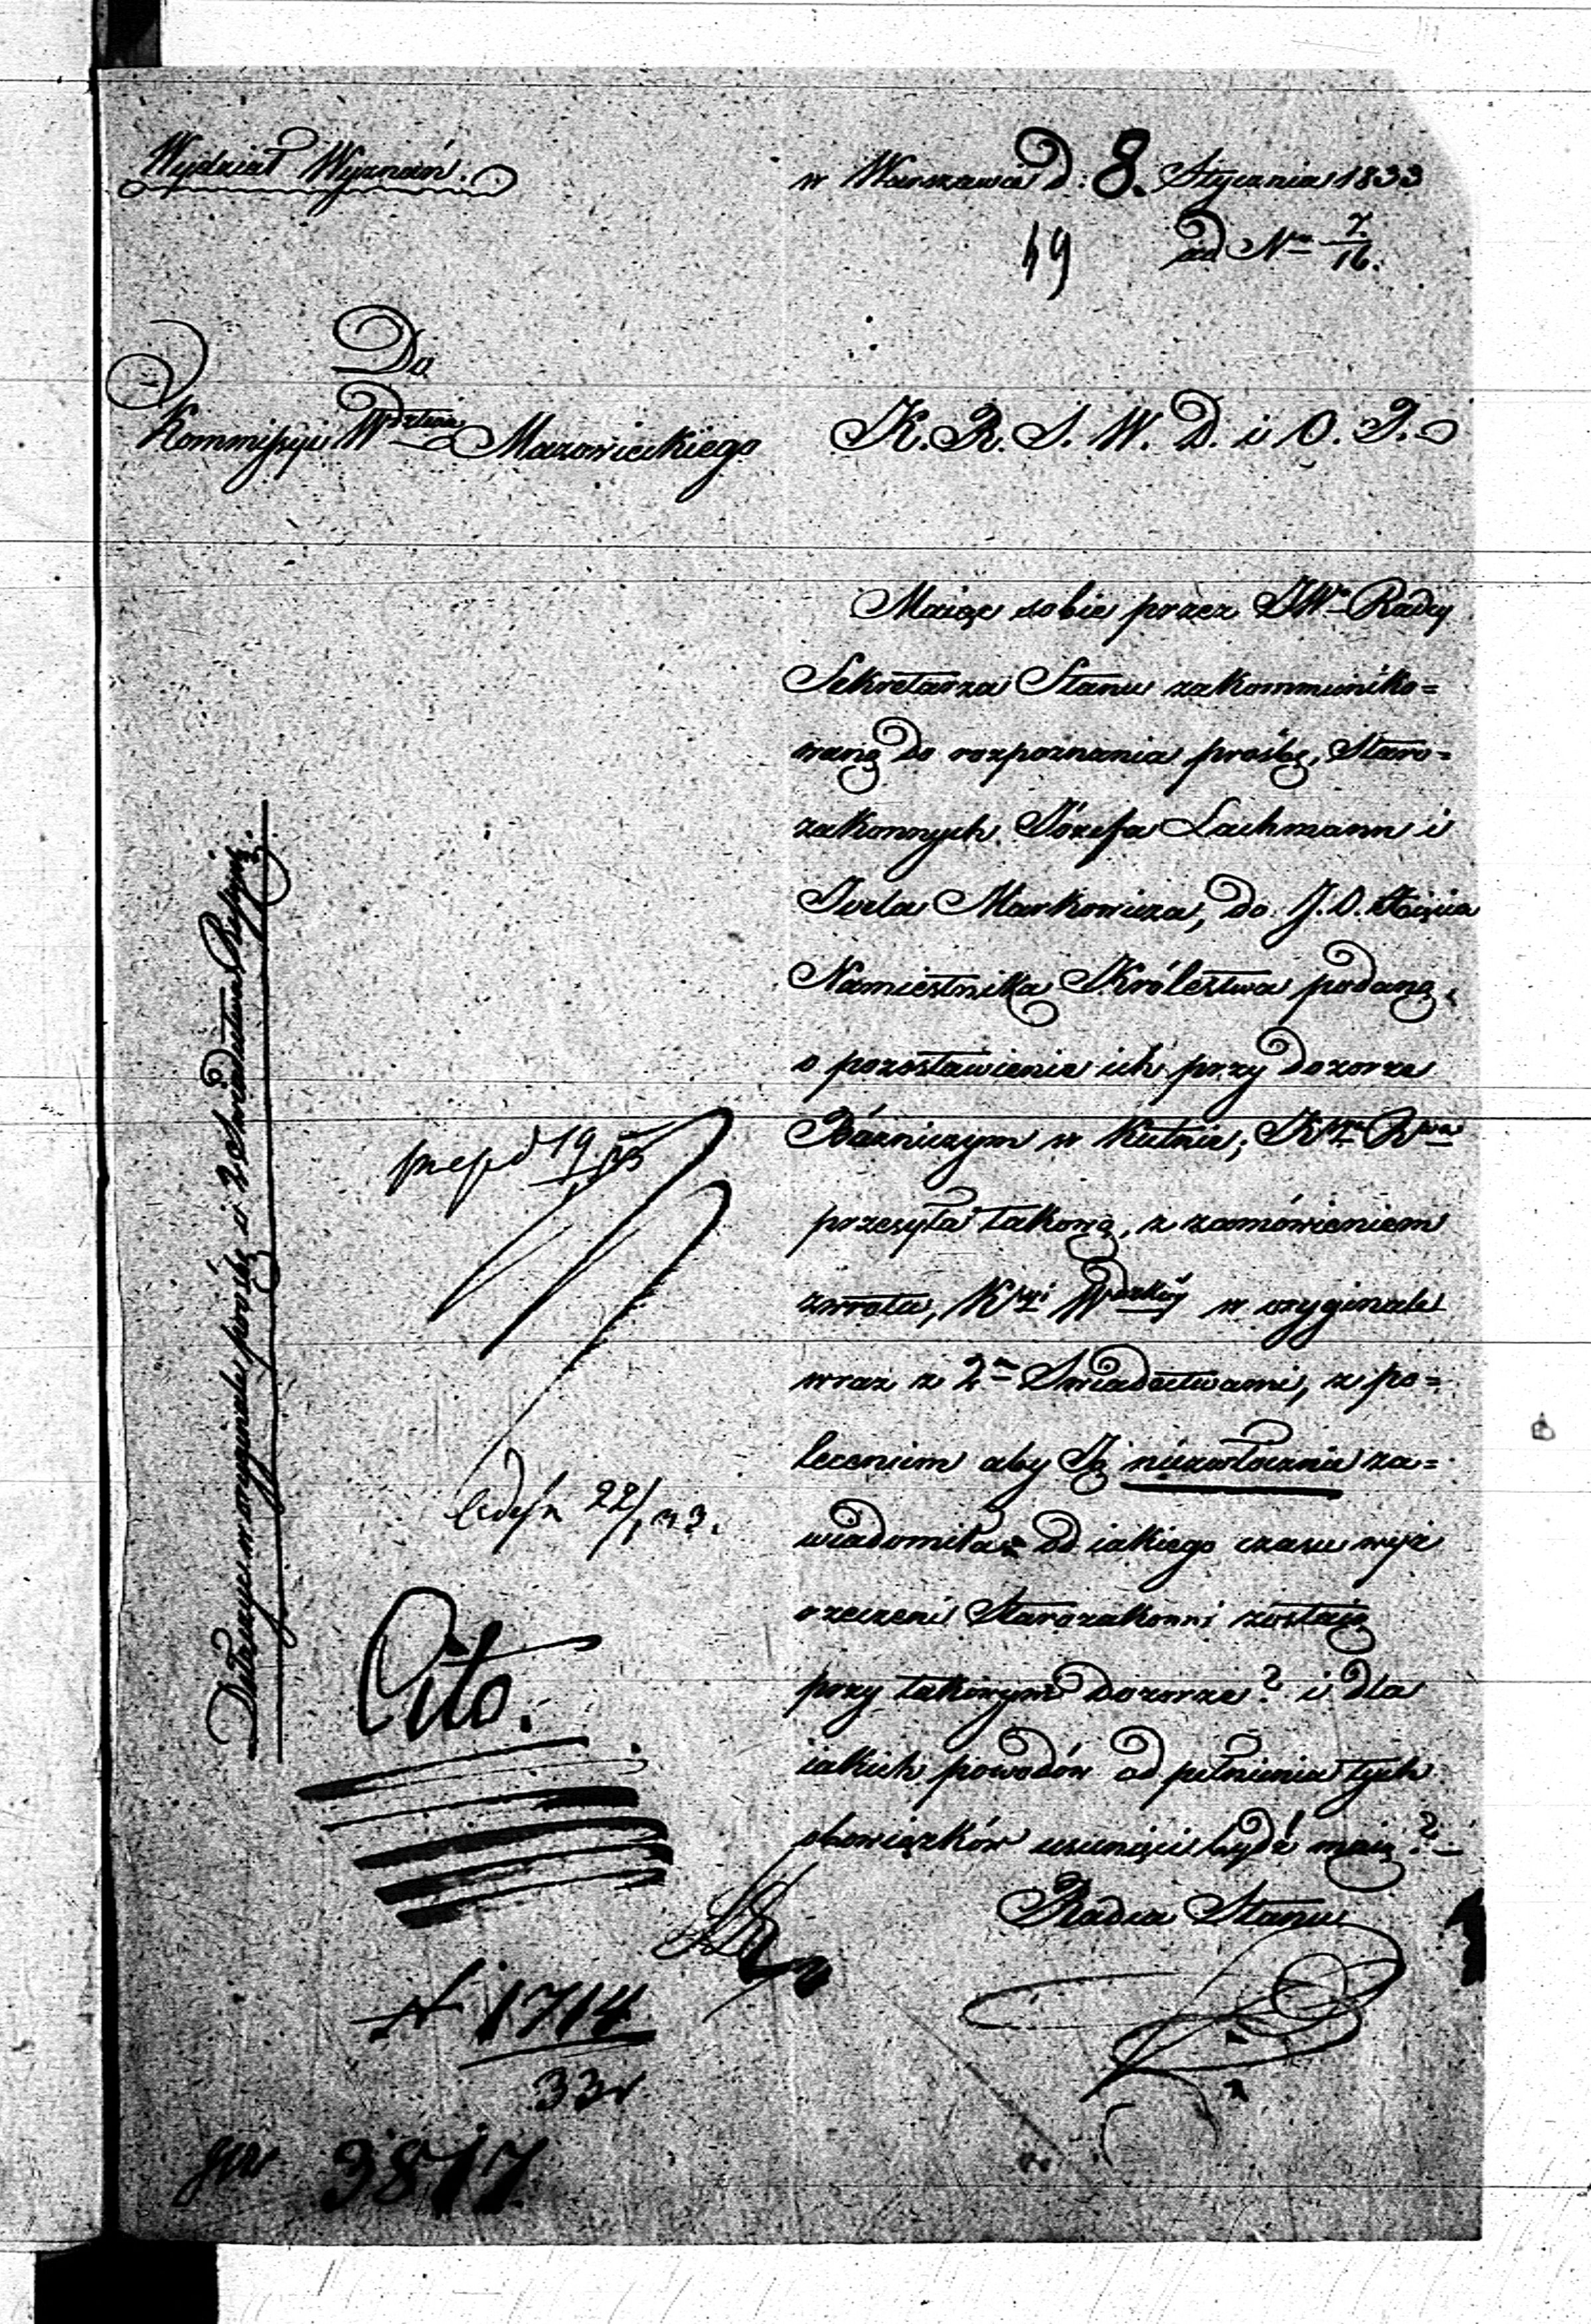 Wydział Wyznań.
w Warszawie d. 8. Stycznia 1833
49 ad Nro 7/16.
Do
Kommissyi Wdztwa Mazowieckiego
K. R. S. W. D. i O. P.
Maiąc sobie przez JWo Radcę
Sekretarza Stanu zakommuniko=
waną do rozpoznania prośbę, Staro=
zakonnych Józefa Lachmann i
Juda Markowicza, do J. O. Xięcia
Namiestnika Królestwa podaną,
o pozostawienie ich przy dozorze
Bóżniczym w Kutnie; Kssya Rwa
przesyła takową, z zamówieniem
zwrotu, Kssyi Wdzkiéy w oryginale
wraz z 2ma Swiadectwami, z po=
leceniem aby Ją niezwłocznie za=
wiadomiła: od iakiego czasu wyż
rzeczeni Starozakonni zostaią
przy takowym Dozorze? i dla
iakich powodów od pełnienia tych
obowiązków usunięci bydź maią?
Radca Stanu
Dołącza się w oryginale prośbę i 2 Swiadectwa
19
22/1 33.
Cito.
N 1714
33r
3817